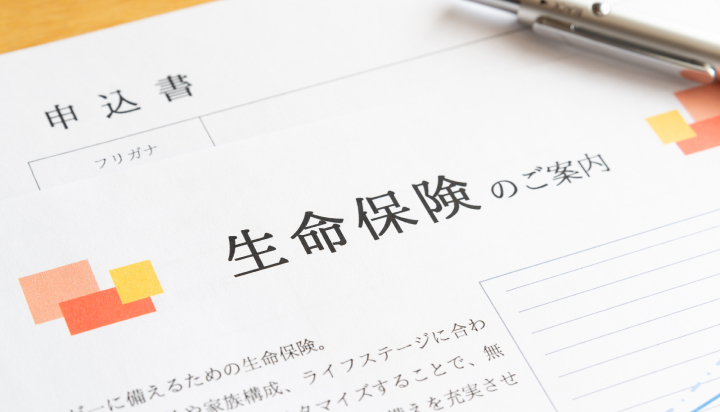 申込書
フリガナ
生命保険のご案内
に備えるための生命保険。
や家族構成、ライフステージに合わ
タマイズすることで、無
備えを充実させ